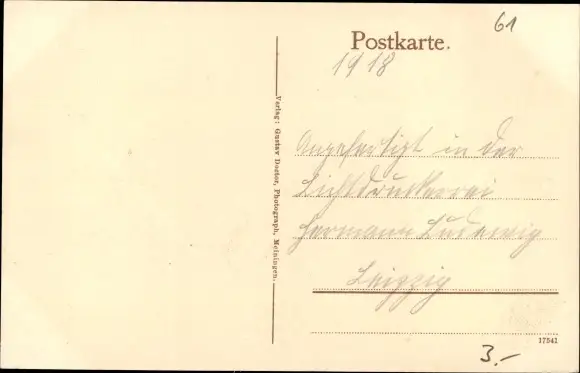 61
Postkarte.
1918
Verlag: Gustav Doctor, Photograph, Meiningen.
Angefertigt in der
Lichtdruckerei
Hermann Ludewig
Leipzig
17541
3.-